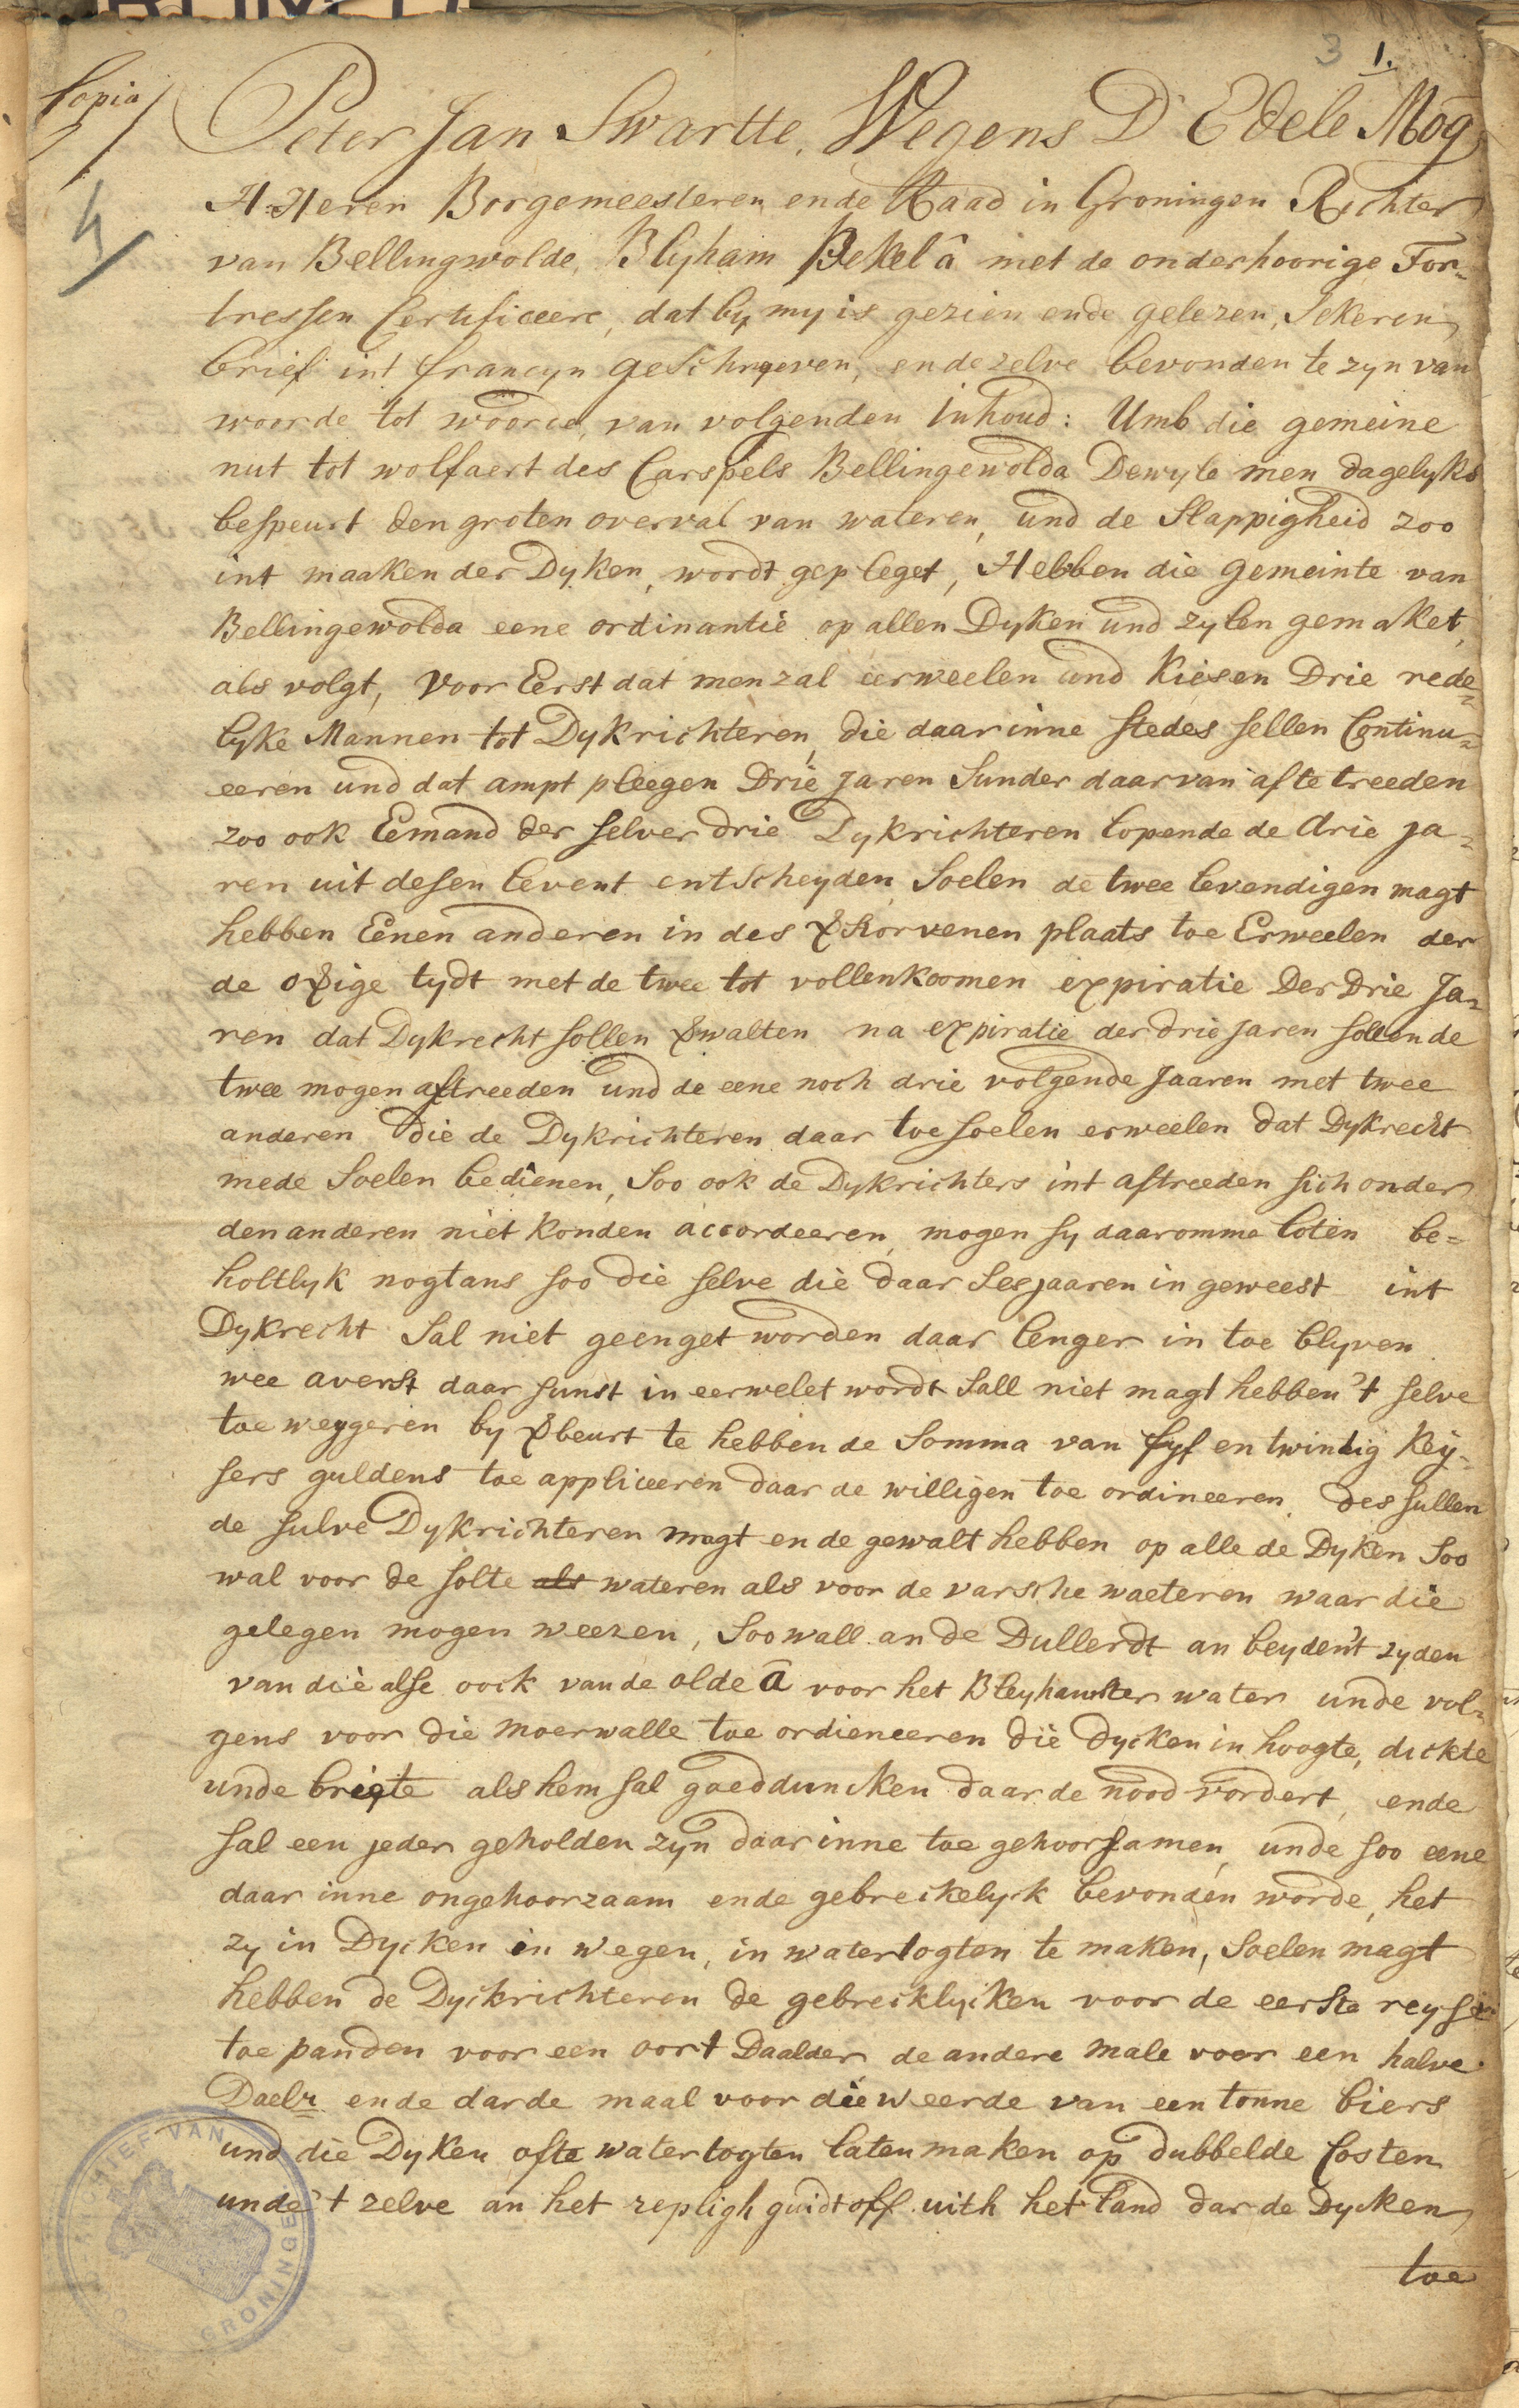 3 1.
Copia
4
Peter Jan Swartte, Wegens D Edele Mog
H:Heren Borgemeesteren ende Raad in Groningen Richter
van Bellingwolde, Blyham Bekel â met de onderhoorige For=
tressen Certificeere, dat by my is gezien ende gelezen, Sekeren
brief int francyn geschreven, ende zelve bevonden te zyn van
woorde tot woorde, van volgenden Inhoud: Umb die gemeine
nut tot wolfaert des Carspels Bellingewolda Dewyle men dagelyks
bespeurt den groten overval van wateren, und de Slappigheid zoo
int maaken der Dyken, wordt gepleget, Hebben die gemeinte van
Bellingewolda eene ordinantie op allen Dyken und zylen gemaket,
als volgt, Voor Eerst dat men zal eerweelen und Kiesen Drie rede=
lyke Mannen tot Dykrichteren, die daarinne stedes sellen Continu=
eeren und dat ampt pleegen Drie Jaren Sunder daarvan af te treeden
zoo ook Eemand der selver drie Dykrichteren lopende de drie Ja=
ren uit desen levent entscheyden Soelen de twee levendigen magt
hebben Eenen anderen in des &storvenen plaats toe Erweelen der
de o&ige tydt met de twee tot vollenkoomen expiratie Der Drie Ja=
ren dat Dykrecht sollen &walten na expiratie der drie Jaren sollen de
twee mogen aftreeden und de eene noch drie volgende Jaaren met twee
anderen die de Dykrichteren daar toe soelen erweelen dat Dykrecht
mede Soelen bedienen, Soo ook de Dykrichters int aftreeden sich onder
den anderen niet konden accordeeren, mogen sy daaromme loten be=
holtlyk nogtans soo die selve die daar Ses jaaren in geweest int
Dykrecht Sal niet geenget worden daar lenger in toe blyven
wee averst daar sunst in eerwelet wordt Sall niet magt hebben 't selve
toe weygeren by &beurt te hebben de Somma van fyf en twintig Key=
sers guldens toe appliceeren daar de willigen toe ordineeren, des sullen
de sulve Dykrichteren magt ende gewalt hebben op alle de Dyken Soo
wal voor de solte als wateren als voor de varsche waeteren waar die
gelegen mogen weezen, Soowall an de Dullerdt an beyden't zyden
van die alse oock van de olde â voor het Bleyhamster water unde vol=
gens voor die moerwalle toe ordieneeren die dycken in hoogte, dickte
unde briete als hem sal goeddunken daar de nood vordert, ende
sal een jeder geholden zyn daar inne toe gehoorsamen, unde soo eene
daar inne ongehoorzaam ende gebreckelyck bevonden worde, het
zy in Dycken in wegen, in watertogten te maken, Soelen magt
hebben de Dyckrichteren de gebrecklycken voor de eerste reyse
toe panden voor een oort Daalder de andere male voor een halve
Daelr ende darde maal voor die weerde van een tonne biers
und die Dyken ofte watertogten laten maken op dubbelde Costen
unde 't zelve an het repligh guidt off uith het land dar de Dycken
toe
ARCHIEF VAN GRONINGEN